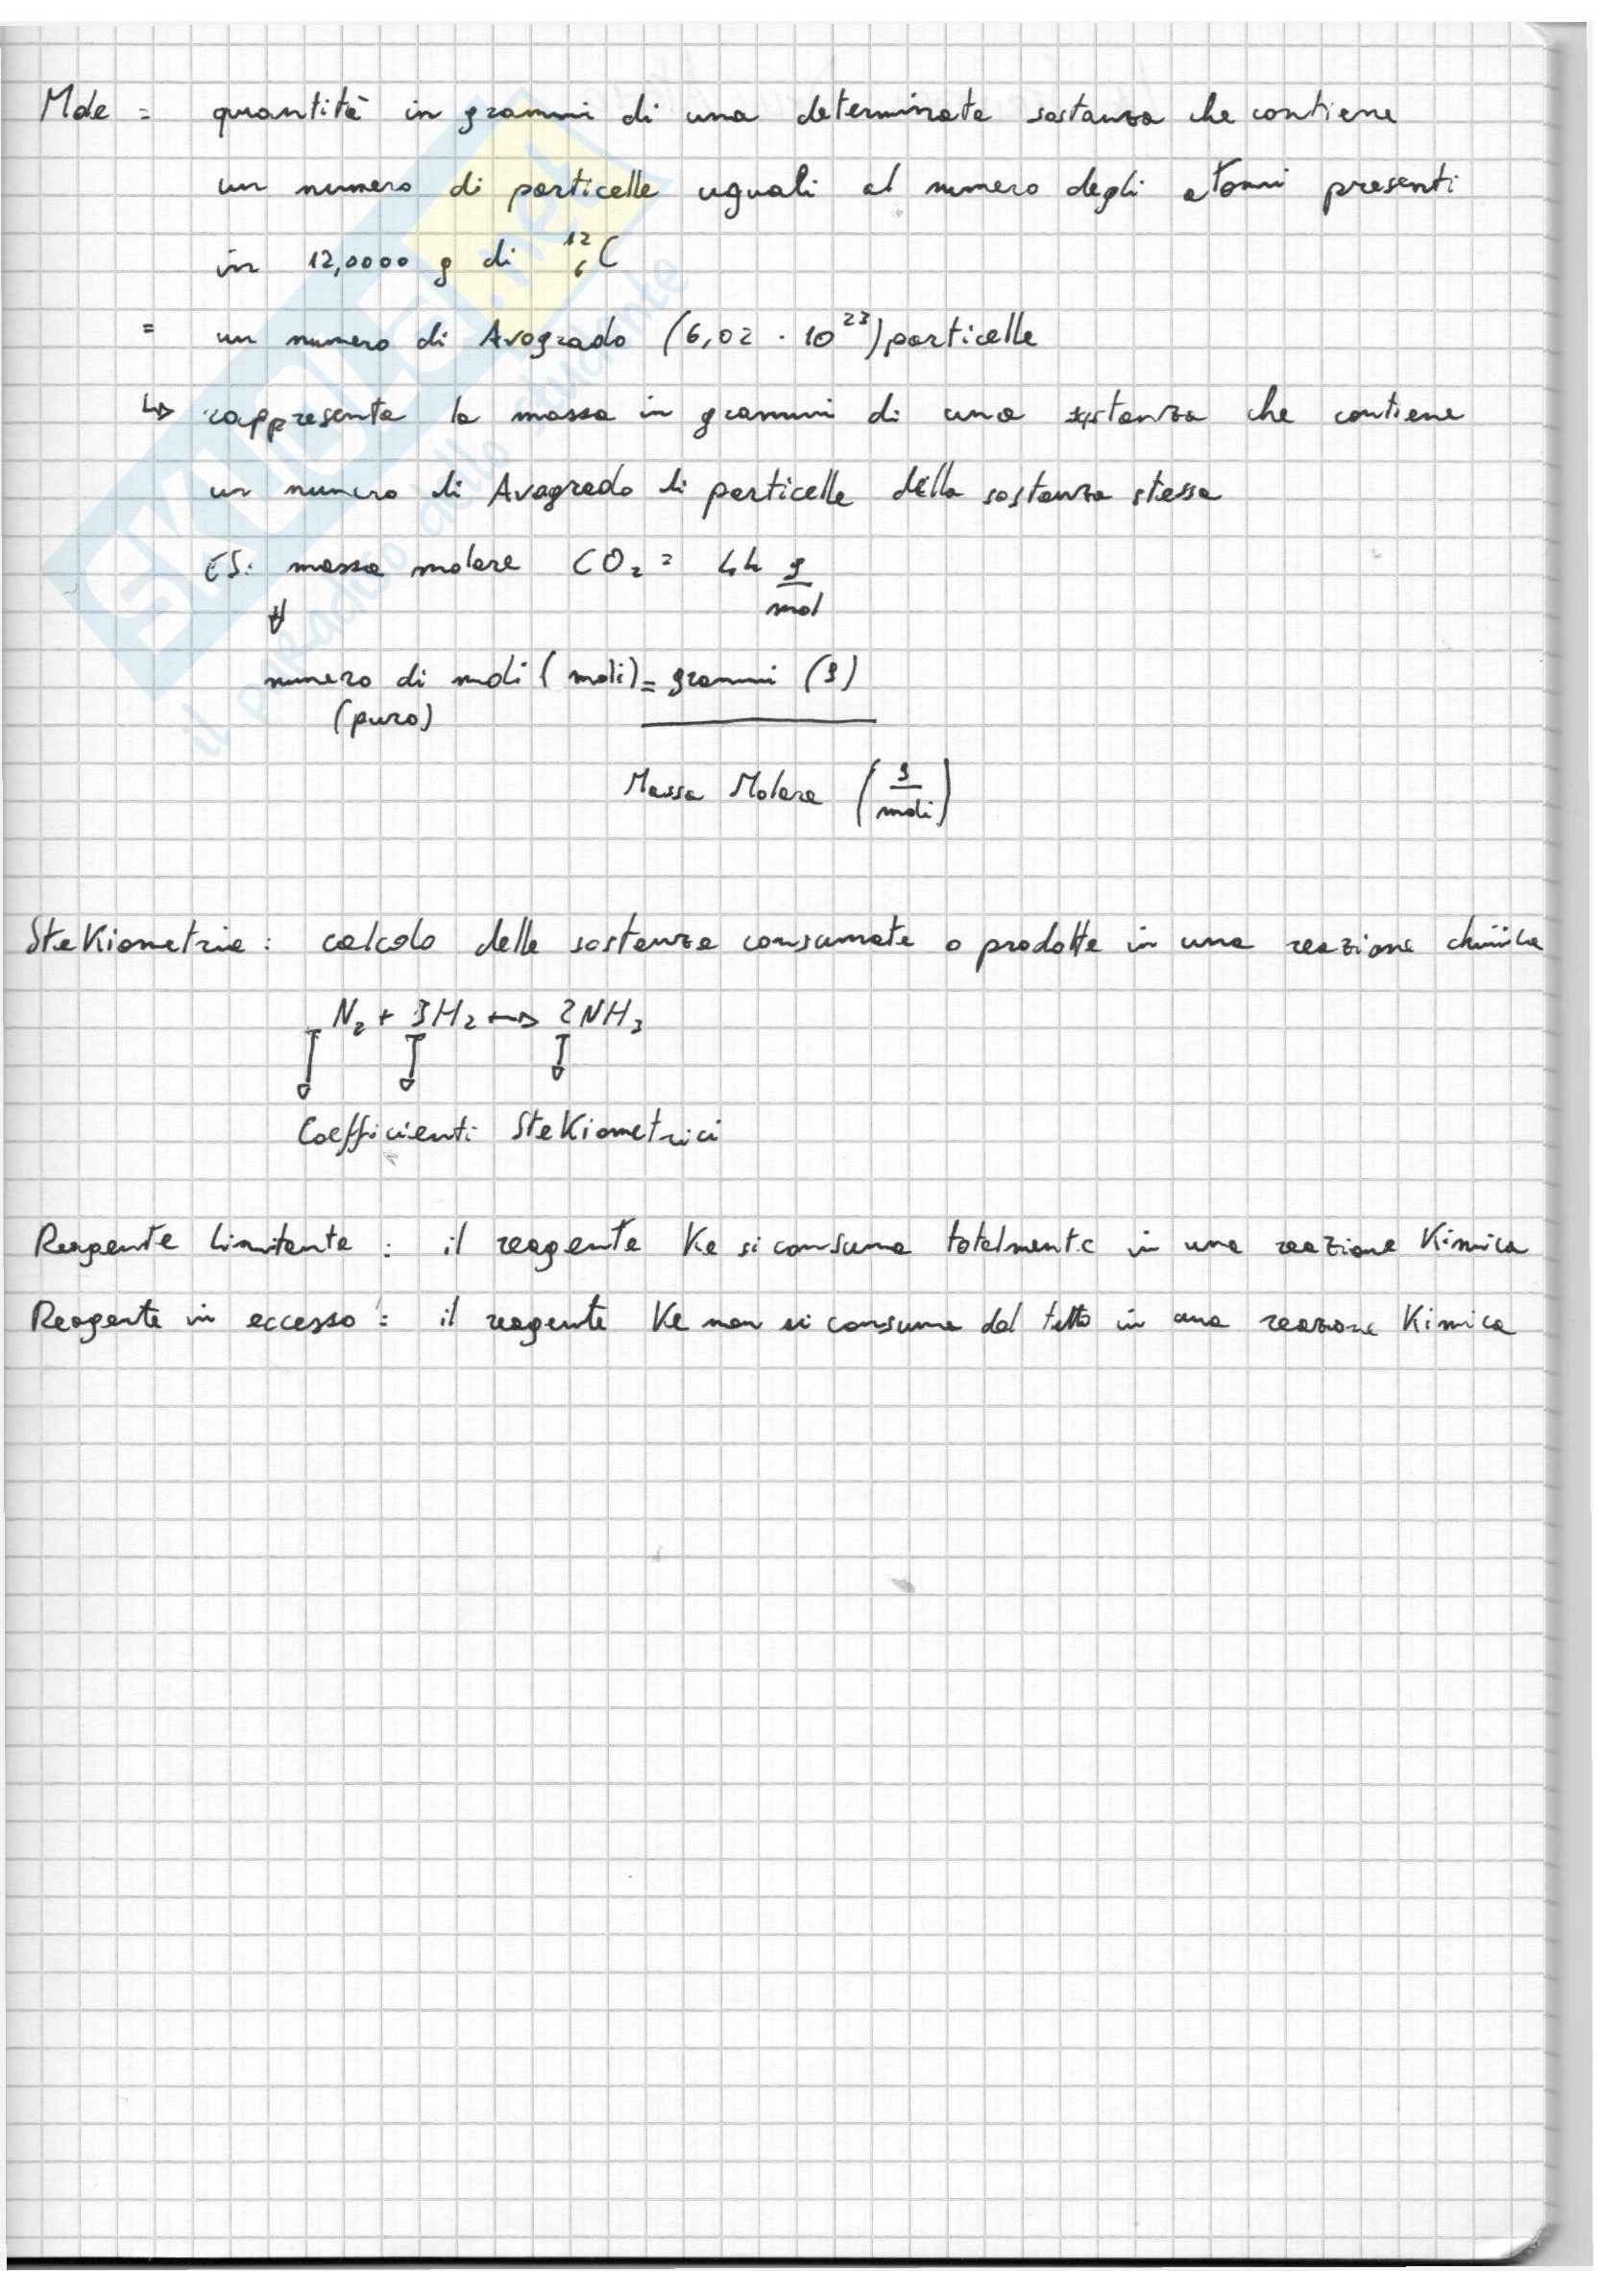 Mole = quantità in grammi di una determinata sostanza che contiene
un numero di particelle uguali al numero degli atomi presenti
in 12,0000 g di ¹²₆C
= un numero di Avogrado (6,02 · 10²³) particelle
↳ rappresenta la massa in grammi di una sostanza che contiene
un numero di Avagrado di particelle della sostanza stessa
ES: massa molare CO₂ = 44 g/mol
⇓
numero di moli (moli) = grammi (g)
(puro)
Massa Molare (g/moli)
SteKiometria: calcolo delle sostanze consumate o prodotte in una reazione chimica
N₂ + 3H₂ ↔ 2NH₃
Coefficienti SteKiometrici
Reagente limitante: il reagente Ke si consuma totalmente in una reazione Kimica
Reagente in eccesso: il reagente Ke non si consuma del tutto in una reazione Kimica
SKUOLA.net
il paradiso dello studente